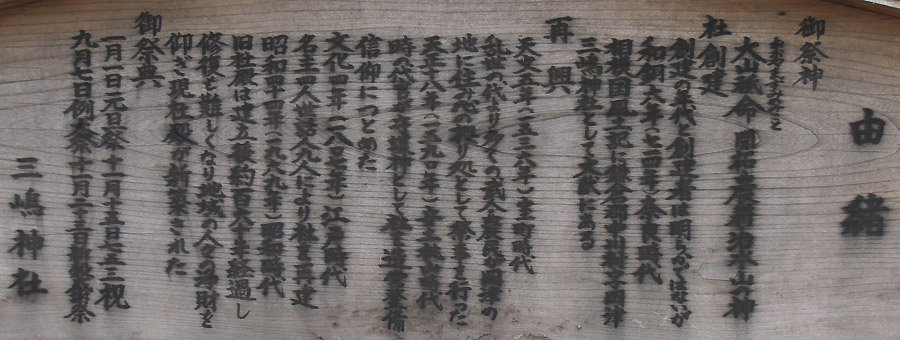 由緒
御祭神
おおやまづみのみこと
大山祇命 開拓 山神
社創建
創建の年代と創立者は明らかではないが
和銅六年（七一四年）奈良時代
相模国風土記に 郡中川村 国津
三嶋神社として文献にある
再興
天文五年（一五三六年）室町時代
乱世の代より多くの武人 の
地に住み心の拠り処として祭事を行った
天正十八年（一五九〇年）安土桃山時代
時の代官 として社を造営
信仰につとめた
文化四年（一八〇七年）江戸時代
名主四人世話人八人により社を再建
昭和四十四年（一九六九年）昭和時代
旧社殿は建立後約百六十年経過し
修復を難しくなり地域の人々の浄財を
仰ぎ現社殿が新築された
御祭典
一月一日元旦祭 十一月十五日七五三祝
九月七日例大祭 十一月二十三日新嘗祭
三嶋神社